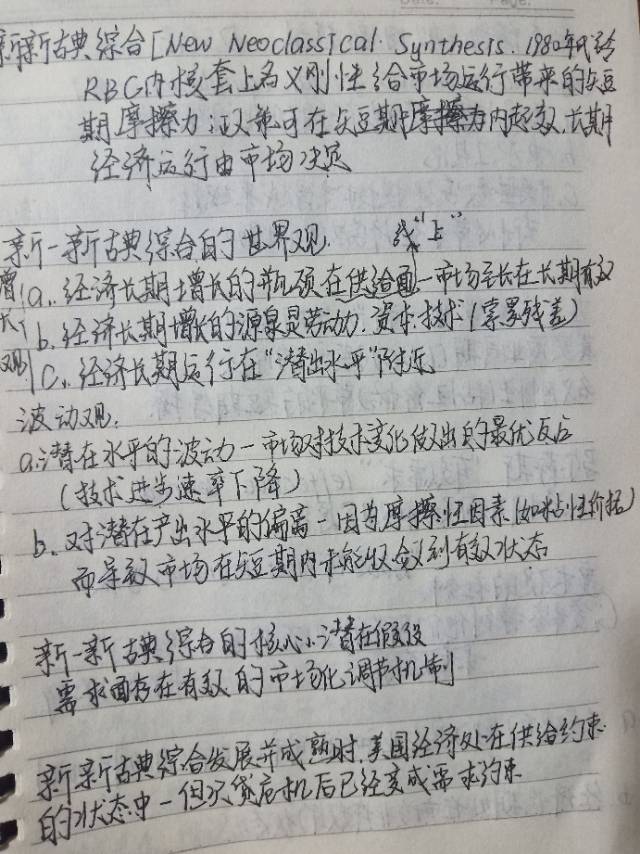 新新古典综合[New Neoclassical Synthesis. 1980年代始
RBC内核套上名义刚性给市场运行带来的短
期摩擦力;政策可在短期摩擦力内起效,长期
经济运行由市场决定
新-新古典综合的世界观. 线"上"
增 a. 经济长期增长的瓶颈在供给面-市场至长在长期有效
长 b. 经济长期增长的源泉是劳动力.资本.技术(索罗残差)
观 c. 经济长期运行在"潜出水平"附近
波动观.
a.潜在水平的波动-市场对技术变化做出的最优反应
(技术进步速率下降)
b. 对潜在产出水平的偏离-因为摩擦性因素(如粘性价格)
而导致市场在短期内未能收敛到有效状态
新-新古典综合的核心潜在假设
需求面存在有效的市场化调节机制
新新古典综合发展并成熟时.美国经济处在供给约束
的状态中-但次贷危机后已经变成需求约束